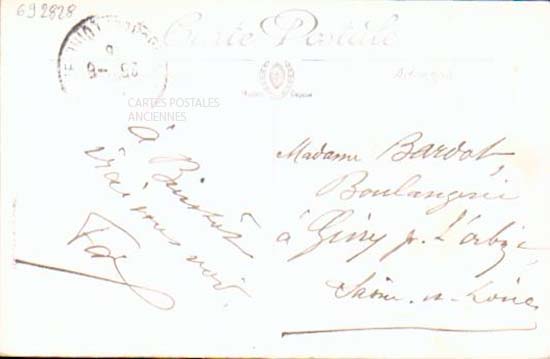 692828
Carte Postale
CARTES POSTALES
ANCIENNES
à Bientôt
irai vous voir.
Madame Bardot,
Boulangerie
à Givry p. L'orbize
Saône-et-Loire